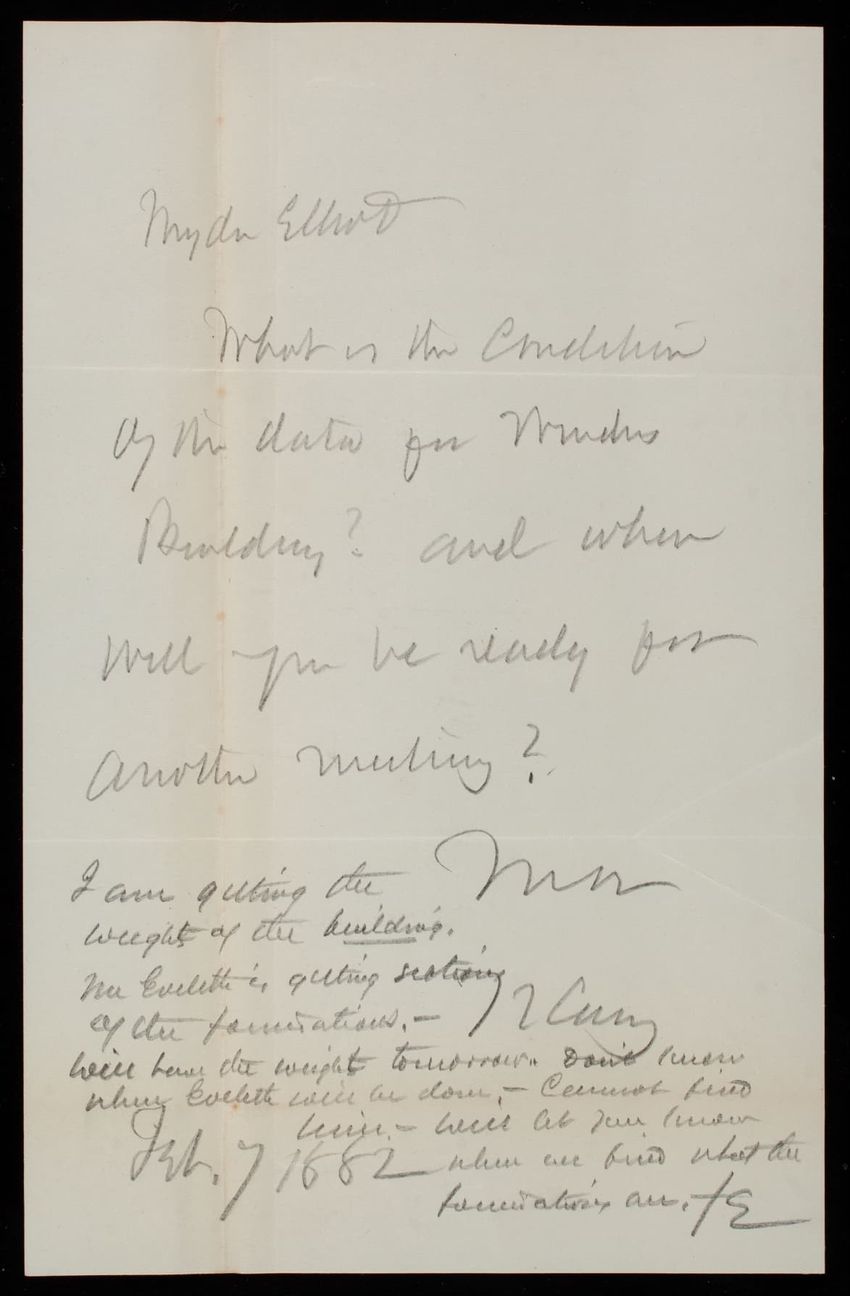 My dr Elliot
What is the Condition
Of the data for Winders
Building? and when
Will you be ready for
another meeting?
Yours
I am getting the
weight of the building.
Mr Eveleth is getting sections
of the foundations. – T L Casey
Will have the weight tomorrow. Don't know
when Eveleth will be done, – Cannot find
him – will let you know
Feb. 7 1882 when we find what the
foundations are.